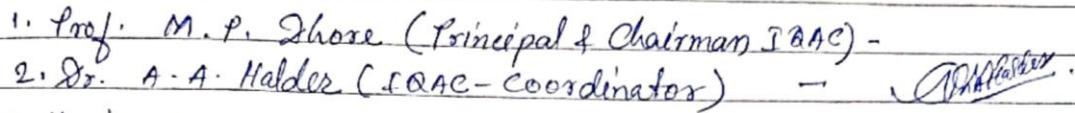 1. Prof. M. P. Dhore (Principal & Chairman IQAC) -
2. Dr. A. A. Halder (IQAC - Coordinator) -